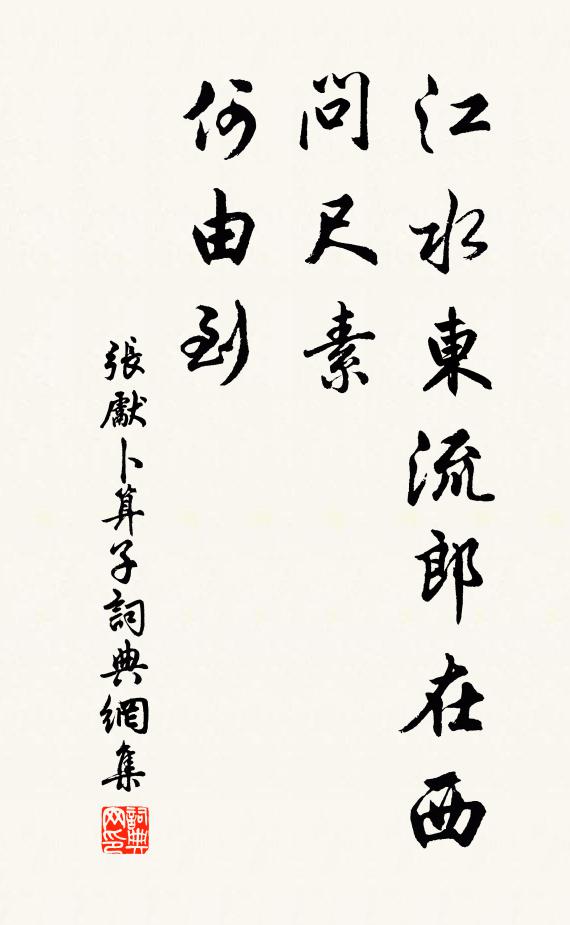 江水東流郎在西
問尺素
何由到
張獻卜算子詞典網集
詞典网印